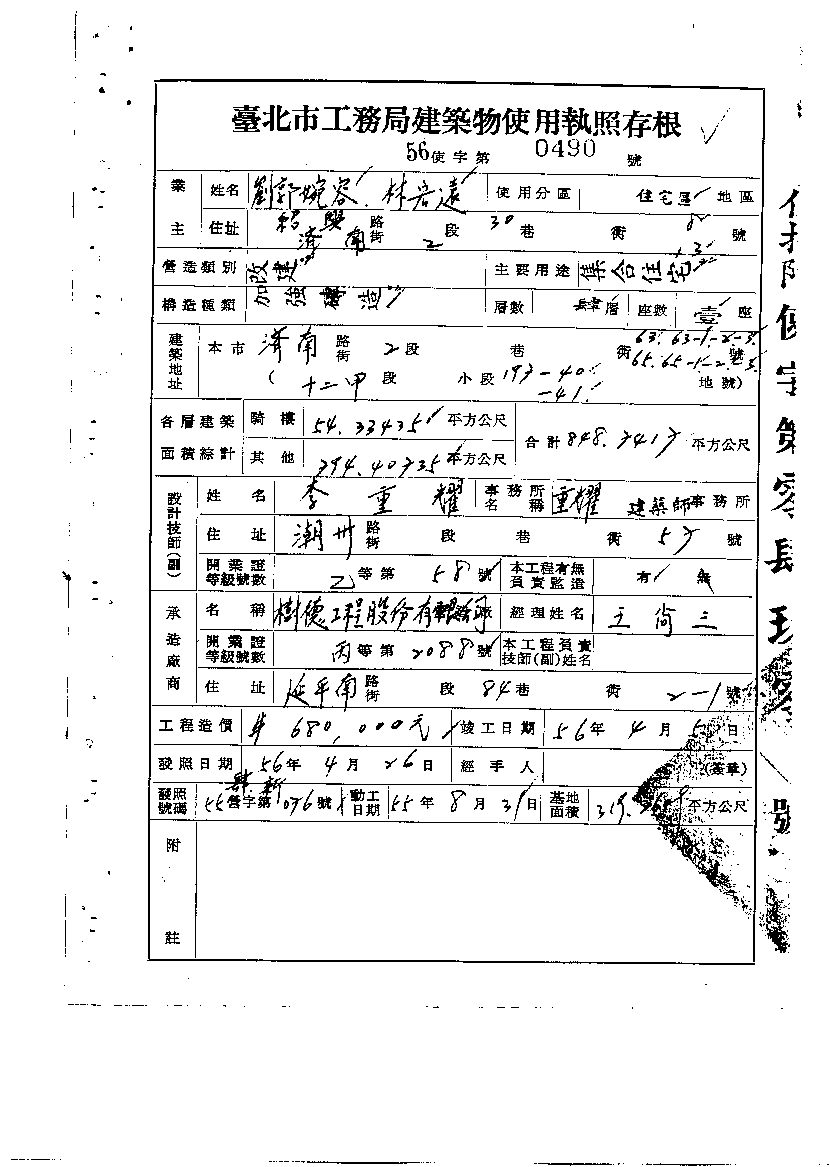 臺北市工務局建築物使用執照存根
56使字第 0490 號
業主 姓名 劉郭婉容．林宕遠 使用分區 住宅區 地區
住址 紹興 濟南 路街 2 段 30 巷 街 8 號
營造類別 改建 主要用途 集合住宅
構造種類 加強磚造 層數 肆層 座數 壹座
建築地址 本市 濟南 路街 2段 巷 街 63. 63-1-2-3. 65. 65-1-2-3 號
( 十二甲 段 小段 193-40. -41. 地號)
各層建築面積綜計 騎樓 54.33435 平方公尺 合計 848.3413 平方公尺
其他 794.40735 平方公尺
設計技師(副) 姓名 李重耀 事務所名稱 重耀 建築師事務所
住址 潮州 路街 段 巷 街 57 號
開業證等級號數 乙等第 58 號 本工程有無負責監造 有 無
承造廠商 名稱 樹德工程股份有限公司 經理姓名 王尚三
開業證等級號數 丙等第 2088 號 本工程負責技師(副)姓名
住址 延平南 路街 段 84巷 街 2-1 號
工程造價 # 680,000元 竣工日期 56年 4月 5日
發照日期 56年 4月 26日 經手人 (簽章)
發照號碼 55營字第 076 號 肆新 動工日期 55年 8月 31日 基地面積 319. 平方公尺
附註
使字第零
號